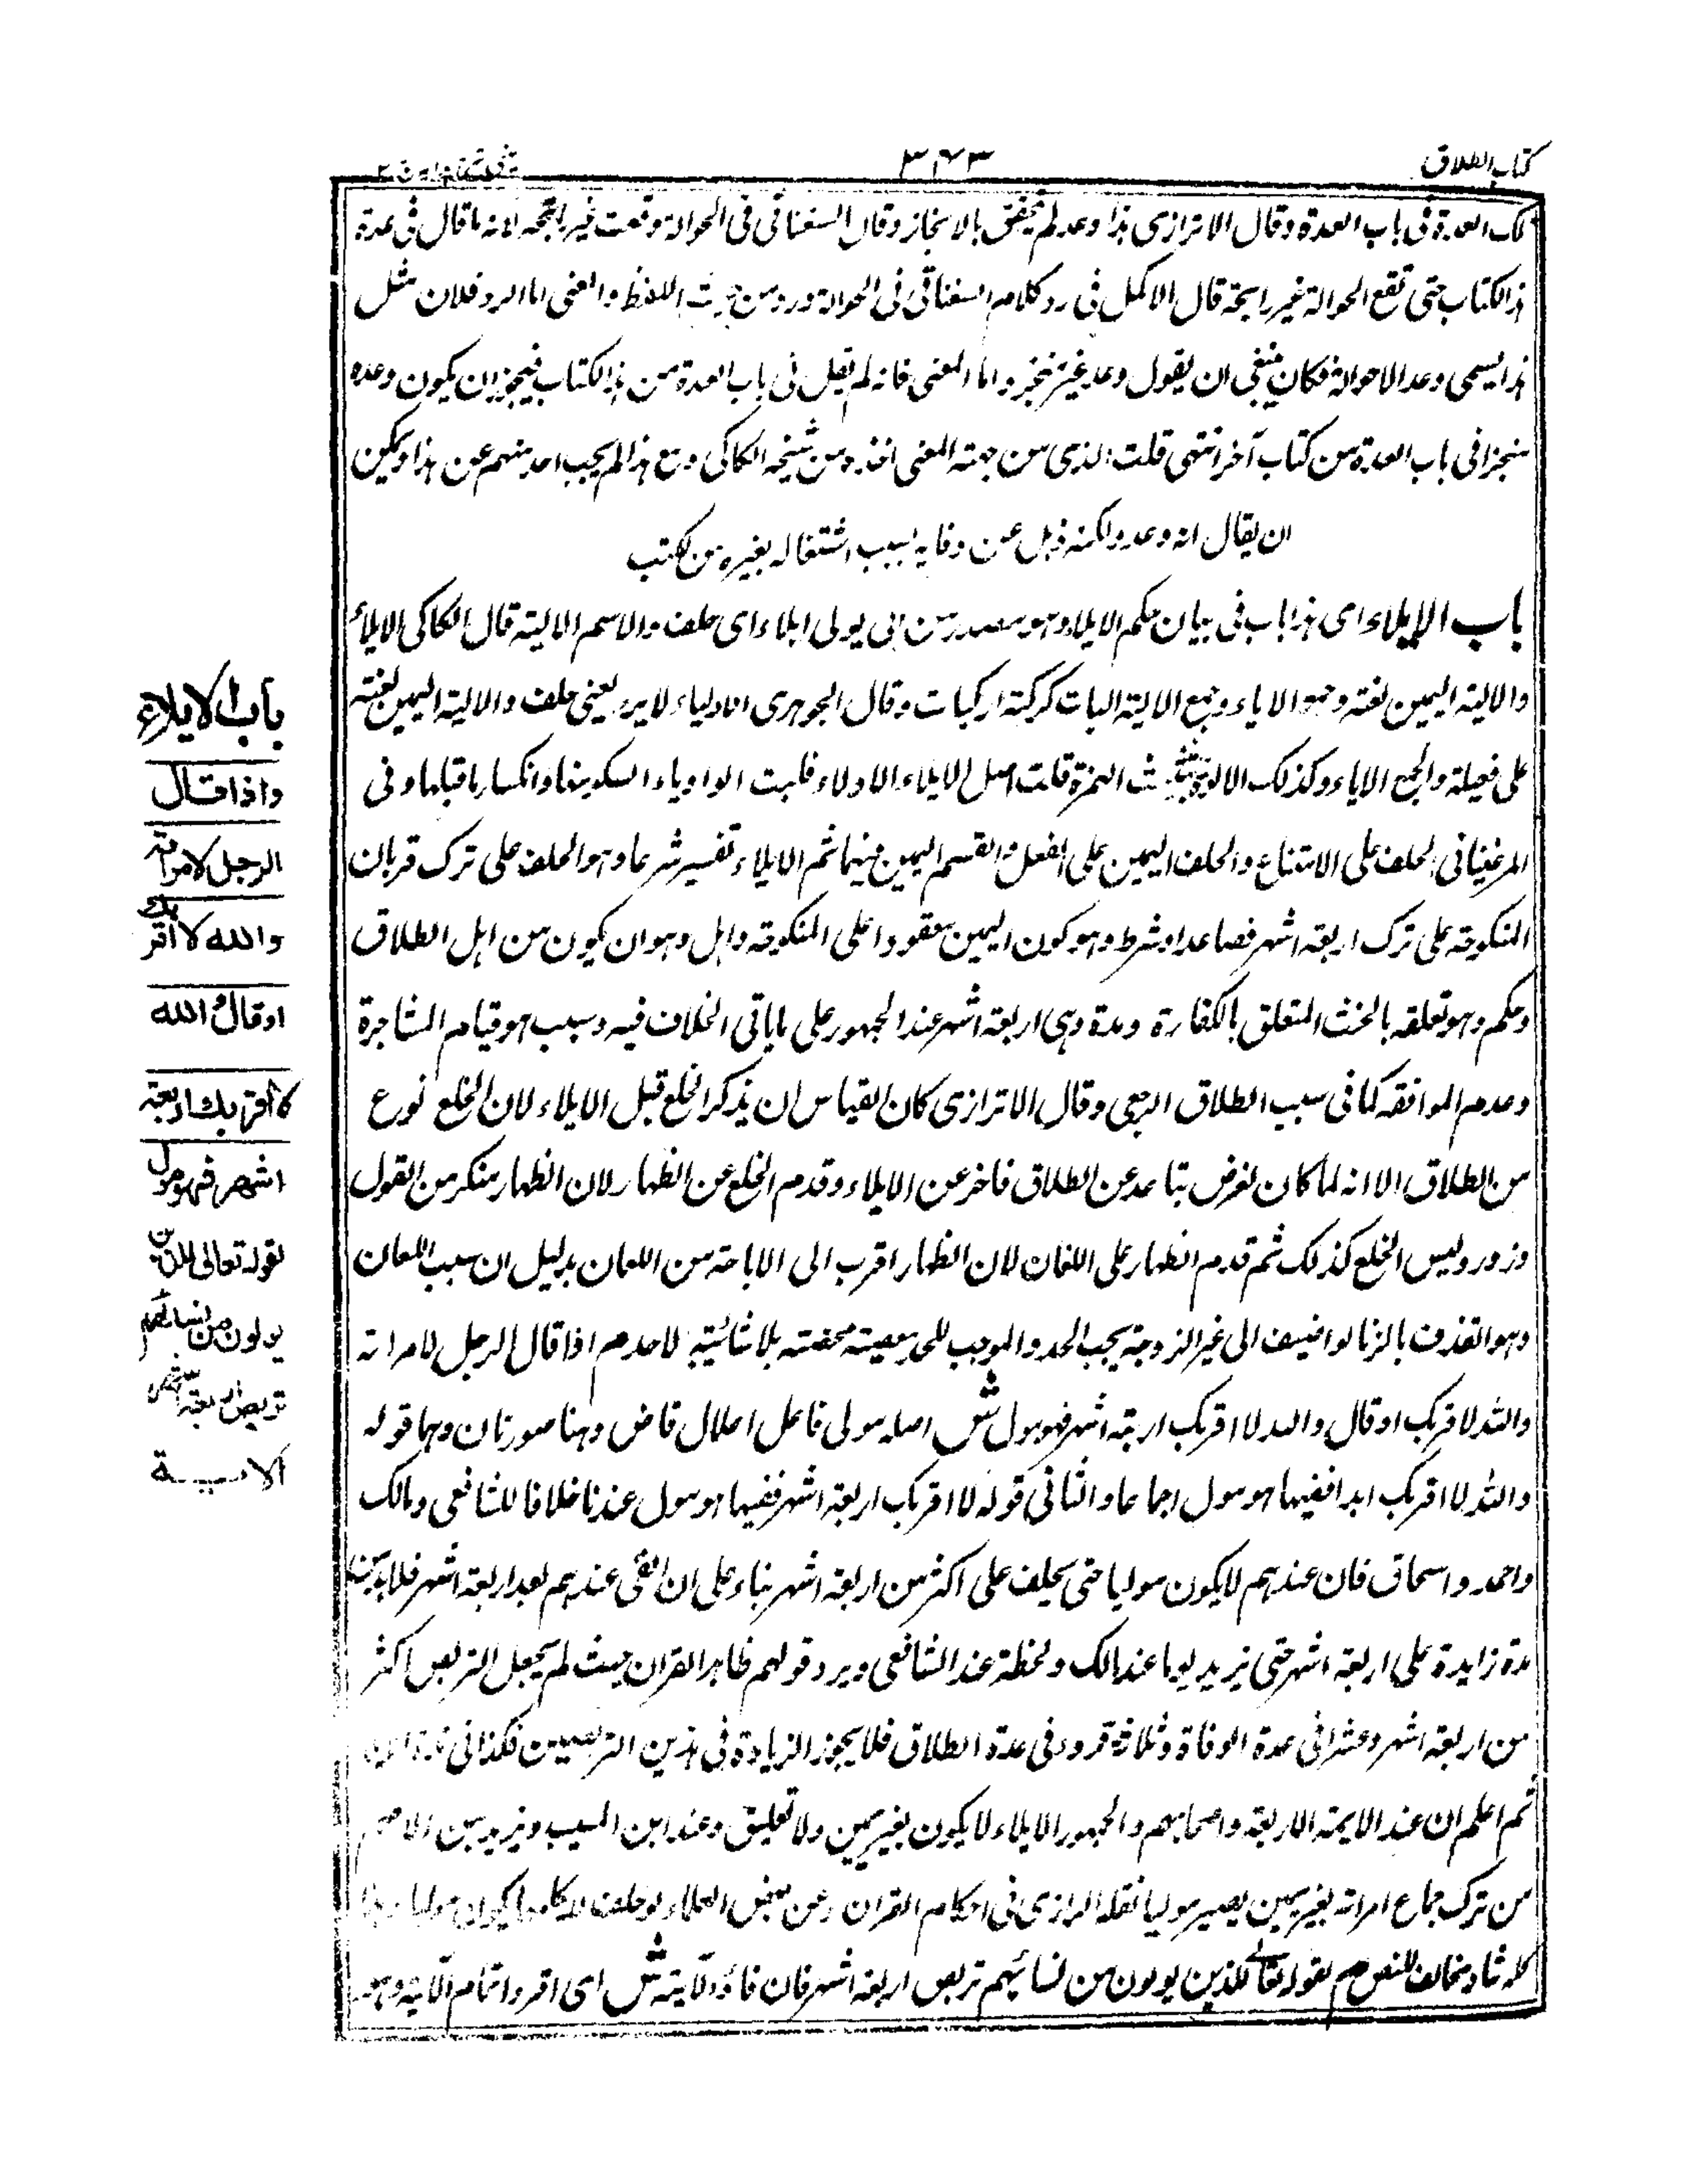 كتاب الطلاق
٣٤٣
تلك العدة فى باب العدة وقال الاترازى هذا وعد لم يتحقق بالانجاز وقال السغناقى فى الحوالة وقعت غير رائجة لانه ما قال فى عدة
هذا الكتاب حتى تقع الحوالة غير رائجة قال الاكمل فى رد كلام السغناقى فى الحوالة ورد من حيث اللفظ والمعنى اما الرد فلان مثل
هذا يسمى وعدا لا حوالة فكان ينبغى ان يقول وعد غير منجز واما المعنى فانه لم يقل فى باب العدة من هذا الكتاب فيجوز ان يكون وعده
منجزا فى باب العدة من كتاب آخر انتهى قلت الذى من جهة المعنى اخذه من شيخه الكاكى ومع هذا لم يجب احد منهم عن هذا ويمكن
ان يقال انه وعد ولكنه ذهل عن وفايه بسبب اشتغاله بغيره من الكتب
باب الإيلاء اى هذا باب فى بيان حكم الايلاء وهو مصدر من الى يولى ايلاء اى حلف والاسم الالية قال الكاكى الايلاء
والالية اليمين لغة وجمعه الالاياء وجمع الالية اليات كركبة اركبات وقال الجوهرى الى يولى ايلاء يعنى حلف والالية اليمين لغة
على فعيلة والجمع الالايا وكذلك الالوة بتثليث الهمزة قلت اصل الايلاء الاولاء قلبت الواو ياء لسكونها وانكسار ما قبلها وفى
المرغينانى الحلف على الامتناع والحلف اليمين على الفعل والقسم اليمين منهما ثم الايلاء تفسير شرعا وهو الحلف على ترك قربان
المنكوحة على ترك اربعة اشهر فصاعدا وشرط وهو كون اليمين معقودا على المنكوحة واهل وهو ان يكون من اهل الطلاق
وحكم وهو تعلقه بالحنث المتعلق بالكفارة ومدة وهى اربعة اشهر عند الجمهور على ما ياتى الخلاف فيه وسبب هو قيام المشاجرة
وعدم الموافقة كما فى سبب الطلاق الرجعى وقال الاترازى كان القياس ان يذكر الخلع قبل الايلاء لان الخلع نوع
من الطلاق الا انه لما كان لغرض تباعد عن الطلاق فاخر عن الايلاء وقدم الخلع عن الظهار لان الظهار منكر من القول
وزور وليس الخلع كذلك ثم قدم الظهار على اللعان لان الظهار اقرب الى الاباحة من اللعان بدليل ان سبب اللعان
وهو القذف بالزنا لو اضيف الى غير الزوجة يجب الحد والموجب للحد معصية محضة بلا شائبة لاحد م اذا قال الرجل لامراته
والله لا اقربك او قال والله لا اقربك اربعة اشهر فهو مول ش اصله مولى فاعل اعلال قاض وهنا صورتان وهما قوله
والله لا اقربك ابدا ففيها هو مول اجماعا والثانى قوله لا اقربك اربعة اشهر ففيها هو مول عندنا خلافا للشافعى ومالك
واحمد واسحاق فان عندهم لا يكون موليا حتى يحلف على اكثر من اربعة اشهر بناء على ان الفئى عندهم بعد اربعة اشهر فلا بد من
مدة زايدة على اربعة اشهر حتى يزيد يوما عند مالك ولحظة عند الشافعى ويرد قولهم ظاهر القران حيث لم يجعل التربص اكثر
من اربعة اشهر وعشرا فى عدة الوفاة وثلاثة قروء فى عدة الطلاق فلا يجوز الزيادة فى هذين التربصين فكذا فى
ثم اعلم ان عند الايمة الاربعة واصحابهم والجمهور الايلاء لا يكون بغير يمين ولا تعليق وعند ابن المسيب ويزيد بن الاصم
من ترك جماع امراته بغير يمين يصير موليا نقله الرازى فى احكام القران وعن بعض العلماء لو حلف لا يكلمها يكون موليا وهذا
كله شاذ مخالف للنص م بقوله تعالى للذين يولون من نسائهم تربص اربعة اشهر فان فاؤ الآية ش اى اقروا تمام الآية وهو
باب الايلاء
واذا قال
الرجل لامراته
والله لا اقربك
او قال والله
لا اقربك اربعة
اشهر فهو مول
لقوله تعالى للذين
يولون من نسائهم
تربص اربعة اشهر
الاية